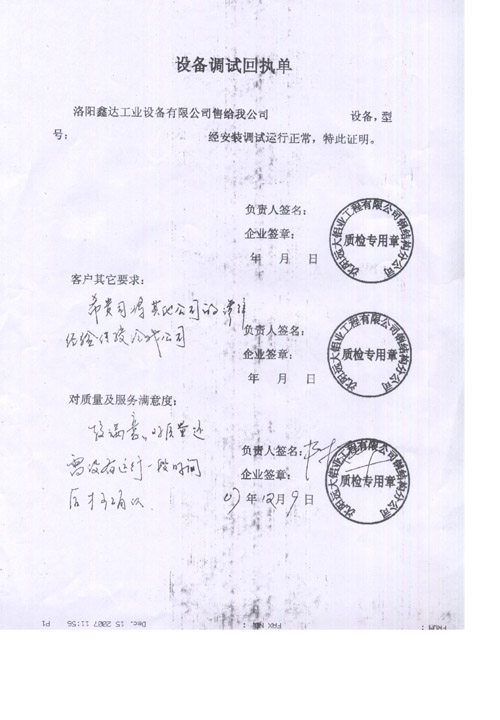 设备调试回执单
洛阳鑫达工业设备有限公司售给我公司 设备，型
号： 经安装调试运行正常，特此证明。
负责人签名：
企业签章：
年 月 日
沈阳远大铝业工程有限公司钢结构分公司
质检专用章
客户其它要求：
希贵司将其他公司的
经验传授给我公司
负责人签名：
企业签章：
年 月 日
沈阳远大铝业工程有限公司钢结构分公司
质检专用章
对质量及服务满意度：
较满意。
需设备运行一段时间
后才可确认
负责人签名：
企业签章：
07年12月9日
沈阳远大铝业工程有限公司钢结构分公司
质检专用章
Dec. 15 2007 11:55 P1
FAX NO. :
FROM :